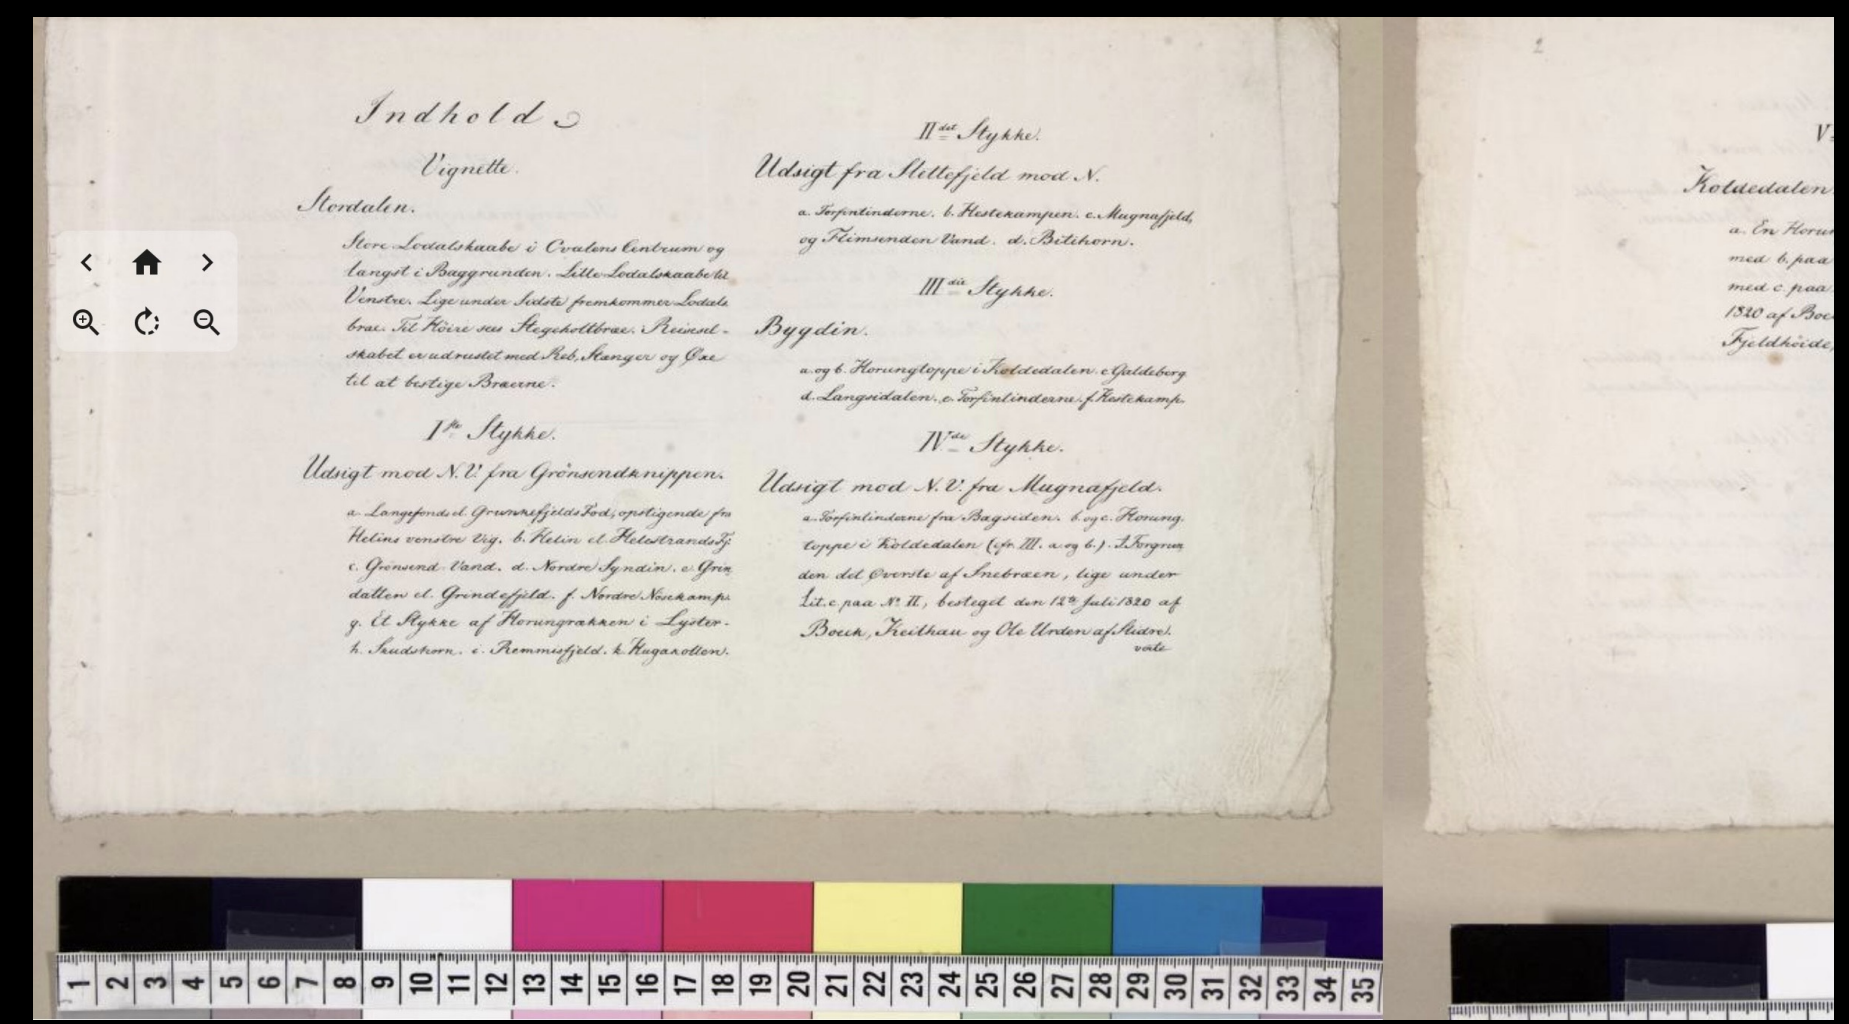 Indhold
Vignette.
Stordalen.
Store Lodalskaabe i Ovalens Centrum og
længst i Baggrunden. Lille Lodalskaabe til
Venstre. Lige under Sidste fremkommer Lodals
bræ. Til Høire sees Stegeholtbræe. Reisesel-
skabet er udrustet med Reb, Stænger og Øxe
til at bestige Bræerne.
Iste Stykke.
Udsigt mod N.V. fra Grönsendknippen.
a. Langefonds el. Grunkefjelds Fod, opstigende fra
Helins venstre Vig. b. Helin el. Helestrands Fj:
c. Grönsend Vand. d. Nordre Syndin. e. Grin
datten el. Grindefjeld. f. Nordre Nosekamp.
g. Et Stykke af Horungrækken i Lyster.
h. Skudshorn. i. Remmisfjeld. k. Hugakollen.
IIdet Stykke.
Udsigt fra Slettefjeld mod N.
a. Torfintinderne. b. Hestekampen. c. Mugnafjeld,
og Flimsenden Vand. d. Bitihorn.
IIIdie Stykke.
Bygdin.
a. og b. Horungtoppe i Koldedalen. c. Galdeberg
d. Langsidalen. e. Torfintinderne. f. Hestekamp.
IVde Stykke.
Udsigt mod N.V. fra Mugnafjeld.
a. Torfintinderne fra Bagsiden. b. og c. Horung-
toppe i Koldedalen (cfr. III. a. og b.). I Forgrun
den det Øverste af Snebræen, lige under
Lit. c paa No II, besteget den 12te Juli 1820 af
Boeck, Keilhau og Ole Urden af Slidre.
verte
2
V
Koldedalen
a. En Horun
med b. paa
med c. paa
1820 af Boe
Fjeldhöide,
1 2 3 4 5 6 7 8 9 10 11 12 13 14 15 16 17 18 19 20 21 22 23 24 25 26 27 28 29 30 31 32 33 34 35